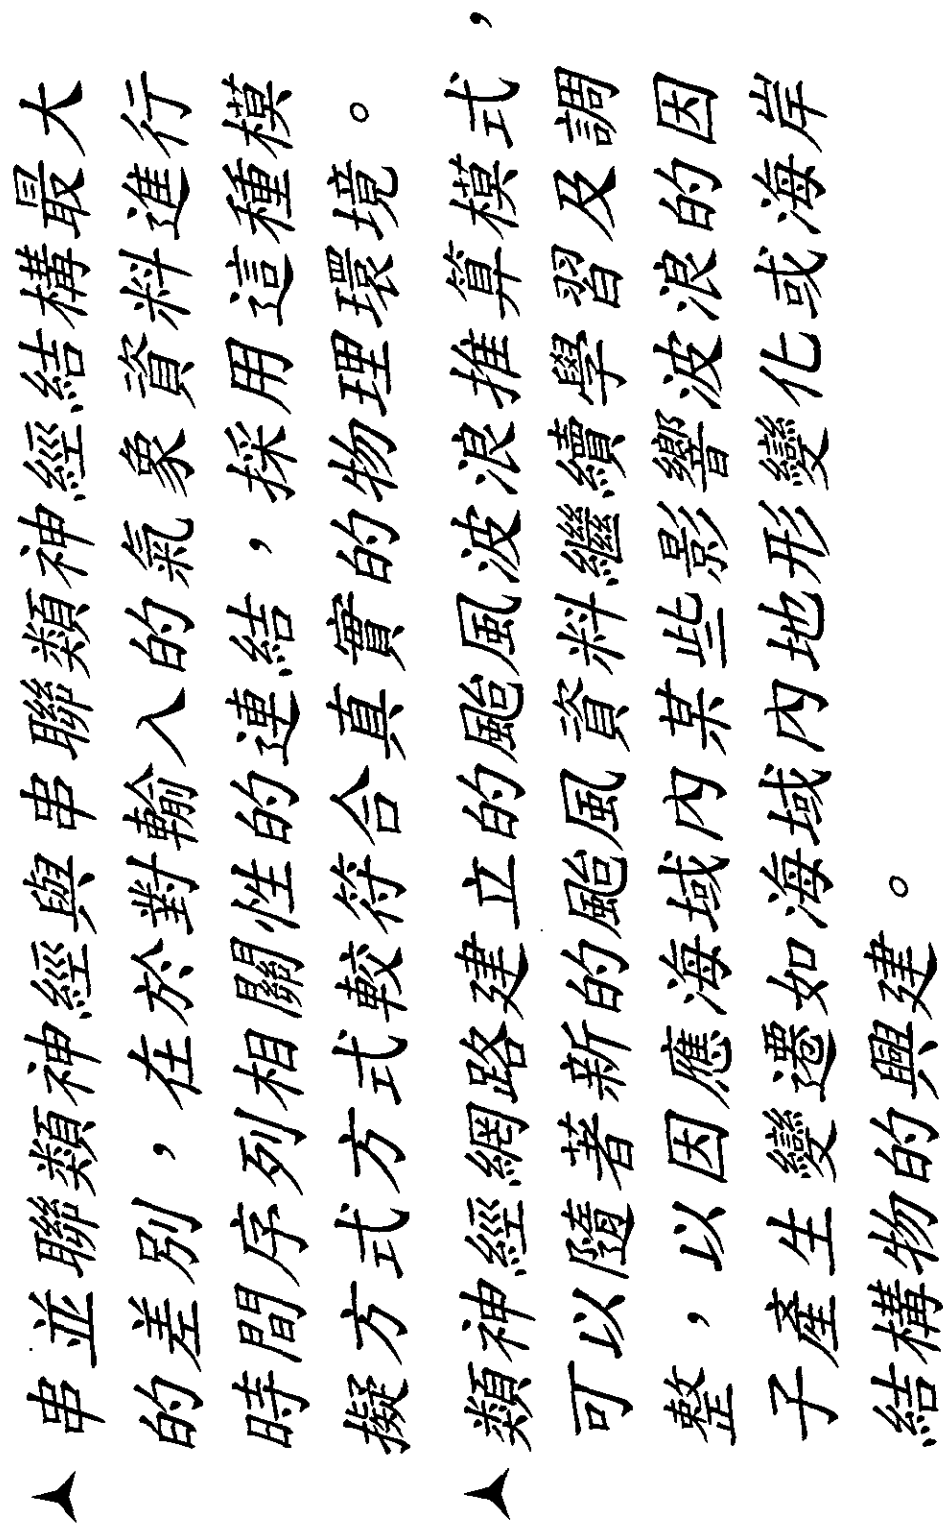 ➤ 串並聯類神經與串聯類神經結構最大
的差別，在於對輸入的氣象資料進行
時間序列相關性的連結，採用這種模
擬方式方式較符合真實的物理環境。
➤ 類神經網路建立的颱風波浪推算模式，
可以隨著新的颱風資料繼續學習及調
整，以因應海域內某些影響波浪的因
子產生變遷如海域內地形變化或海岸
結構物的興建。